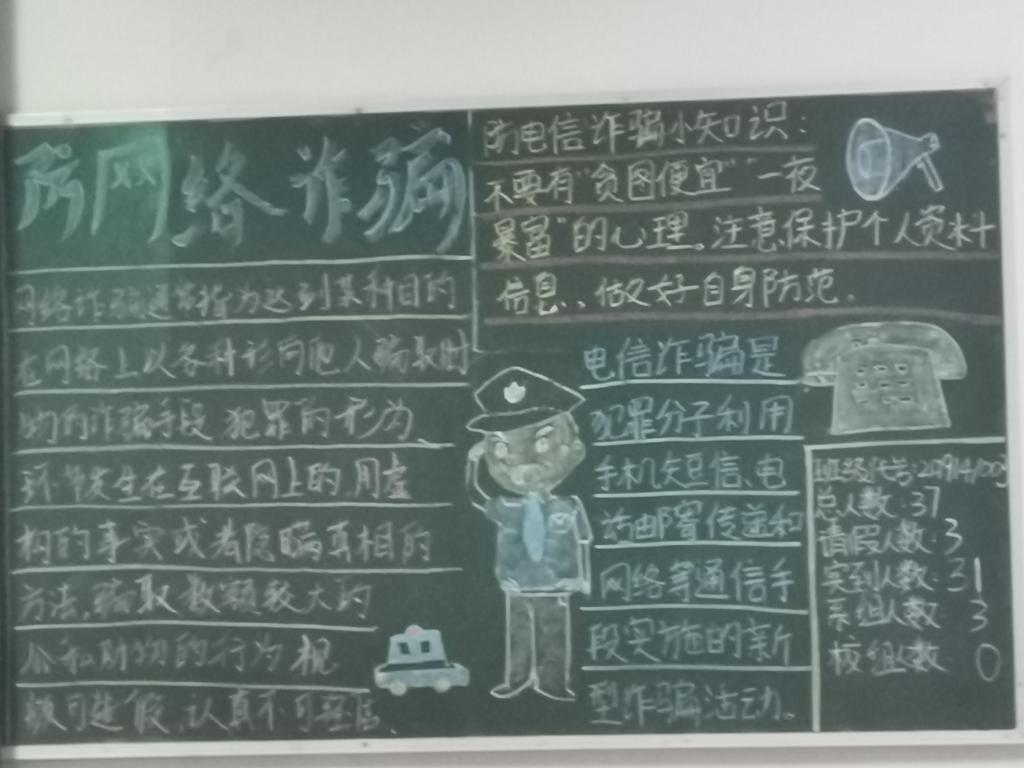 防网络诈骗
网络诈骗通常指为达到某种目的
在网络上以各种形式向他人骗取财
物的诈骗手段 犯罪的行为
环节发生在互联网上的 用虚
构的事实或者隐瞒真相的
方法,骗取数额较大的
公私财物的行为
认真不可
防电信诈骗小知识:
不要有"贪图便宜""一夜
暴富"的心理。注意保护个人资料
信息..做好自身防范.
电信诈骗是
犯罪分子利用
手机短信、电
话邮寄传递和
网络等通信手
段实施的新
型诈骗活动。
班级代号:
总人数:37
请假人数:3
实到人数:31
系组人数 3
校组人数 0